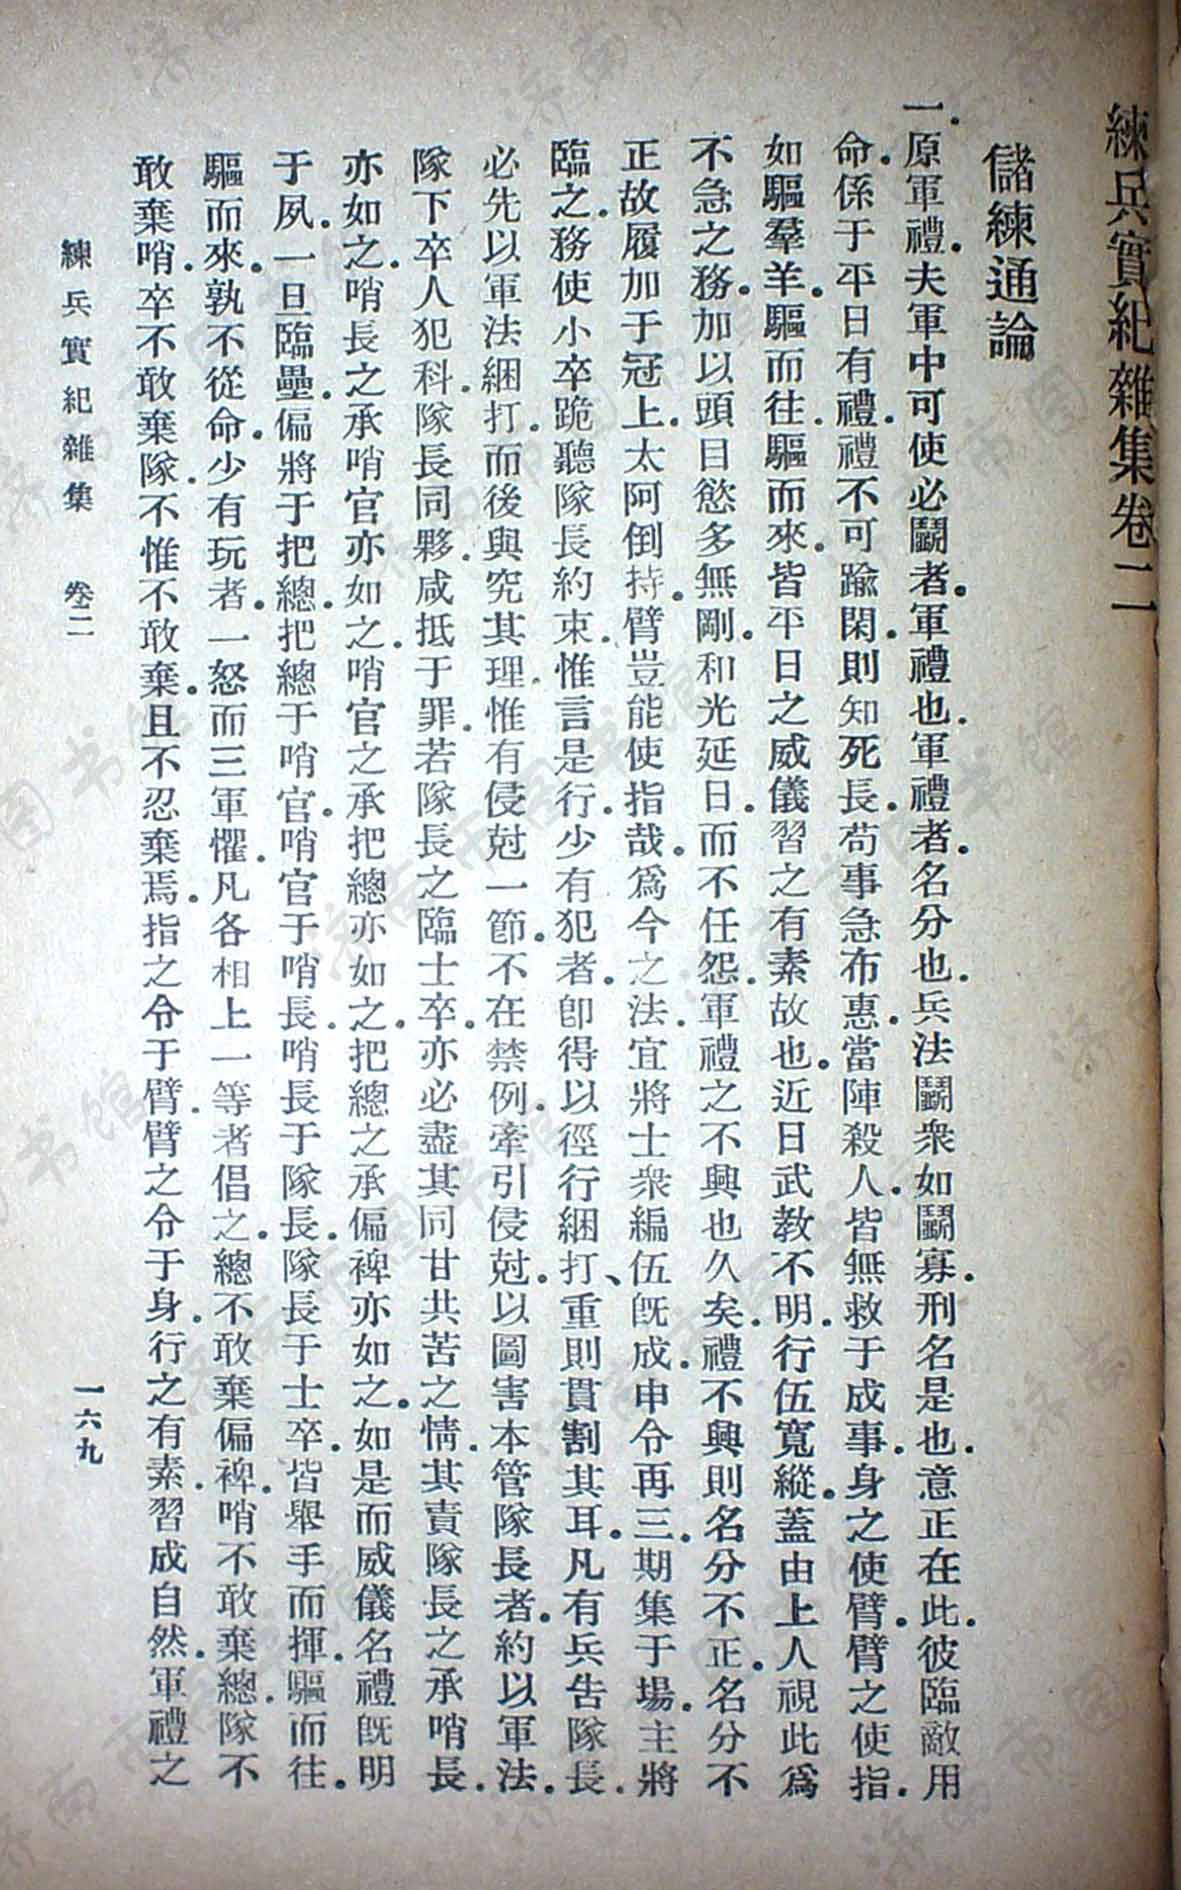 練兵實紀雜集卷二
儲練通論
一原軍禮。夫軍中可使必鬭者。軍禮也。軍禮者。名分也。兵法鬭衆如鬭寡。刑名是也。意正在此。彼臨敵用
命。係于平日有禮。禮不可踰閑。則知死長。苟事急布惠。當陣殺人。皆無救于成事。身之使臂。臂之使指。
如驅羣羊。驅而往。驅而來。皆平日之威儀習之有素故也。近日武教不明。行伍寬縱。蓋由上人視此爲
不急之務。加以頭目慾多無剛。和光延日。而不任怨。軍禮之不興也久矣。禮不興則名分不正。名分不
正。故履加于冠上。太阿倒持。臂豈能使指哉。爲今之法。宜將士衆編伍旣成。申令再三。期集于場。主將
臨之。務使小卒跪聽隊長約束。惟言是行。少有犯者。卽得以徑行綑打、重則貫割其耳。凡有兵告隊長。
必先以軍法綑打。而後與究其理。惟有侵尅一節。不在禁例。牽引侵尅。以圖害本管隊長者。約以軍法。
隊下卒人犯科。隊長同夥。咸抵于罪。若隊長之臨士卒。亦必盡其同甘共苦之情。其責隊長之承哨長。
亦如之。哨長之承哨官亦如之。哨官之承把總亦如之。把總之承偏裨亦如之。如是而威儀名禮旣明
于夙。一旦臨壘。偏將于把總。把總于哨官。哨官于哨長。哨長于隊長。隊長于士卒。皆舉手而揮。驅而往。
驅而來。孰不從命。少有玩者。一怒而三軍懼。凡各相上一等者倡之。總不敢棄偏裨。哨不敢棄總。隊不
敢棄哨。卒不敢棄隊。不惟不敢棄。且不忍棄焉。指之令于臂。臂之令于身。行之有素。習成自然。軍禮之
練兵實紀雜集 卷二 一六九